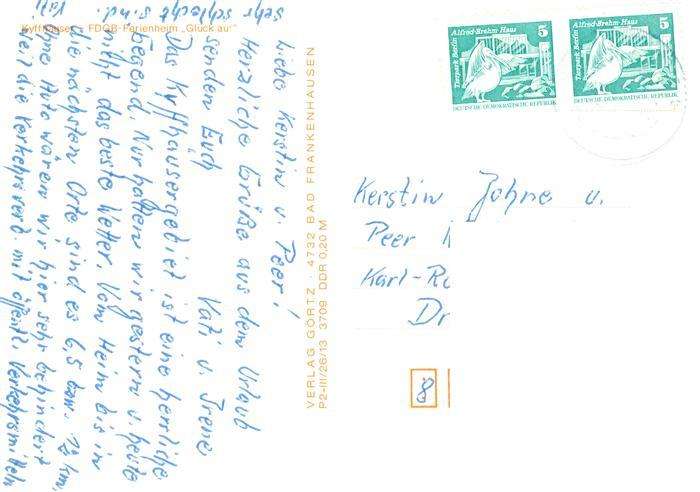 Kyffhäuser - FDGB-Ferienheim „Glück auf"
Liebe Kerstin u. Peer!
Herzliche Grüße aus dem Urlaub
senden Euch
Kati u. Irene
Das Kyffhäusergebiet ist eine herrliche
Gegend. Nur hatten wir gestern u. heute
nicht das beste Wetter. Vom Heim bis in
die nächsten Orte sind es 6,5 bzw. 12 km.
Ohne Auto wären wir hier sehr behindert
weil die Verkehrsverb. mit öffentl. Verkehrsmitteln
sehr schlecht sind.
VERLAG GÖRTZ · 4732 BAD FRANKENHAUSEN
P2-III/26/13 3709 DDR 0,20 M
Tierpark Berlin
Alfred-Brehm-Haus
5
DEUTSCHE DEMOKRATISCHE REPUBLIK
Tierpark Berlin
Alfred-Brehm-Haus
5
DEUTSCHE DEMOKRATISCHE REPUBLIK
Kerstin Johne u.
Peer
Karl-Ro
Dr
8